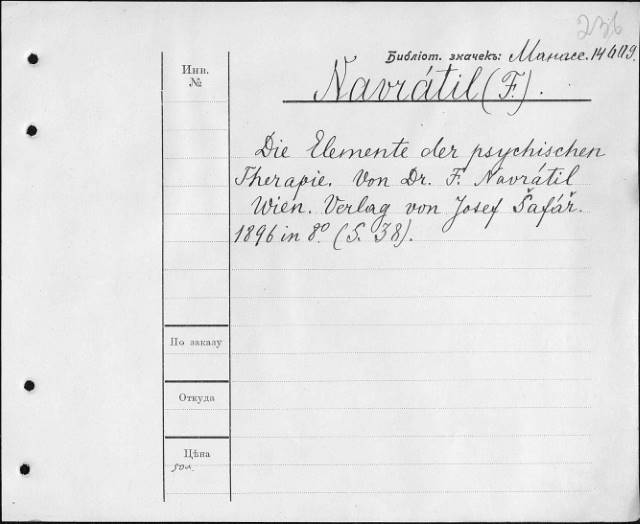 236
Библіот. значекъ: Манасс. 14409.
Инв.
№
Navrátil (F.).
Die Elemente der psychischen
Therapie. Von Dr. F. Navrátil
Wien. Verlag von Josef Šafář.
1896 in 8º (S. 38).
По заказу
Откуда
Цѣна